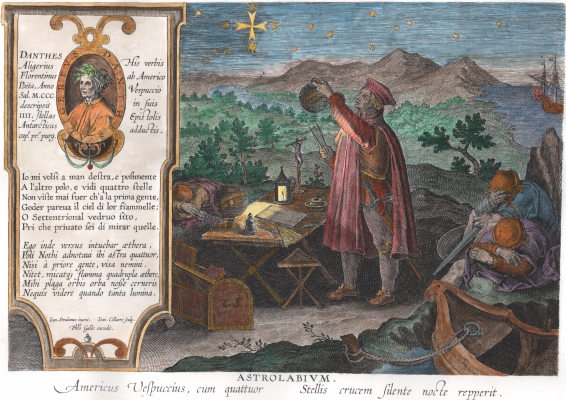 DANTHES
Aligerius
Florentinus
Poëta, Anno
Sal. M.CCC.
descripsit
IIII. stellas
Antarcticas
cap. pr.° purg.
His verbis
ab Americo
Vespuccio
in suis
Epistolis
adductis.
Io mi volsi a man destra, e posimente
A l'altro polo, e vidi quattro stelle
Non viste mai fuer ch'a la prima gente,
Goder pareua il ciel di lor fiammelle;
O Settentrional vedouo sito,
Poi che priuato sei di mirar quelle.
Ego inde versus intuebar æthera,
Poli Nothi adnotaui ibi astra quatuor,
Nisi à priore gente, visa nemini.
Nitet, micatq; flamma quadrupla æthere.
Mihi plaga orbis orba nosse cerneris
Nequis videre quando tanta lumina.
Ioan. Stradanus invent.
Ioan. Collaert sculp.
Phls Galle excudit.
ASTROLABIVM.
Americus Vespuccius, cum quattuor Stellis crucem silente nocte repperit.